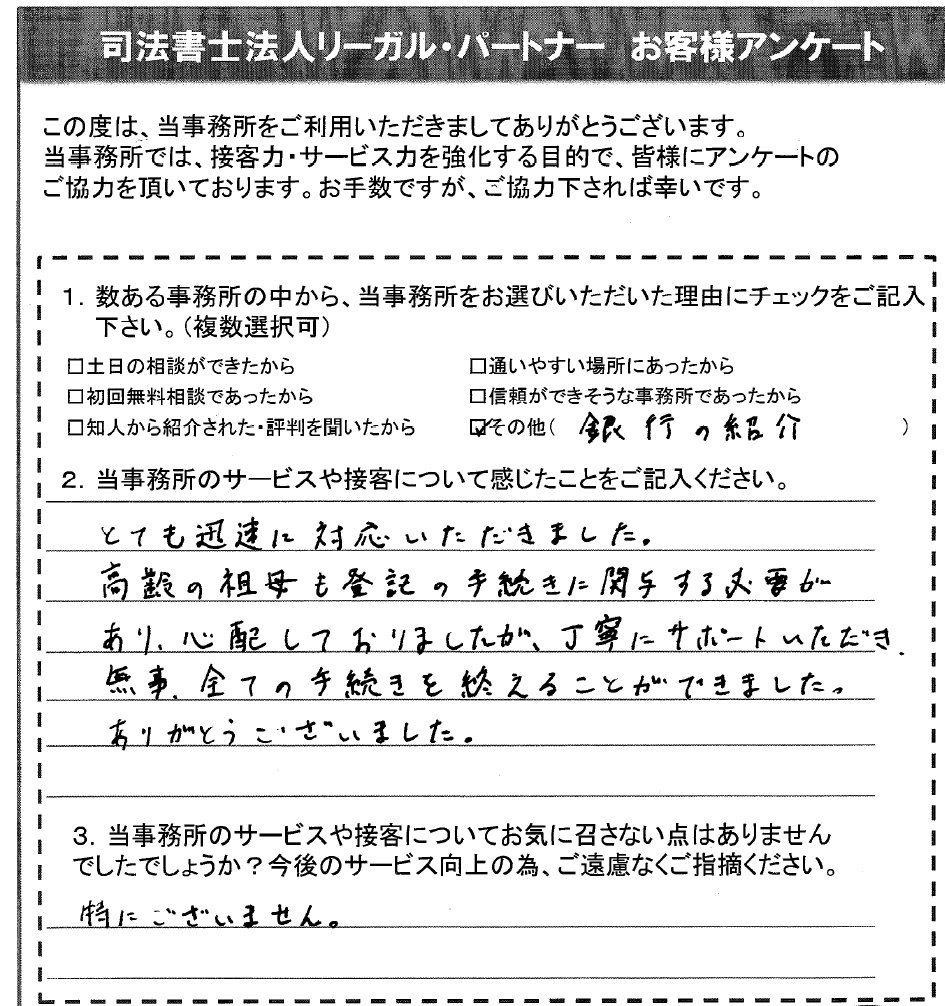 司法書士法人リーガル・パートナー　お客様アンケート
この度は、当事務所をご利用いただきましてありがとうございます。
当事務所では、接客力・サービス力を強化する目的で、皆様にアンケートの
ご協力を頂いております。お手数ですが、ご協力下されば幸いです。
1．数ある事務所の中から、当事務所をお選びいただいた理由にチェックをご記入
下さい。（複数選択可）
□土日の相談ができたから　□通いやすい場所にあったから
□初回無料相談であったから　□信頼ができそうな事務所であったから
□知人から紹介された・評判を聞いたから　☑その他（ 銀行の紹介 ）
2．当事務所のサービスや接客について感じたことをご記入ください。
とても迅速に対応いただきました。
高齢の祖母も登記の手続きに関与する必要が
あり、心配しておりましたが、丁寧にサポートいただき、
無事、全ての手続きを終えることができました。
ありがとうございました。
3．当事務所のサービスや接客についてお気に召さない点はありません
でしたでしょうか？今後のサービス向上の為、ご遠慮なくご指摘ください。
特にございません。